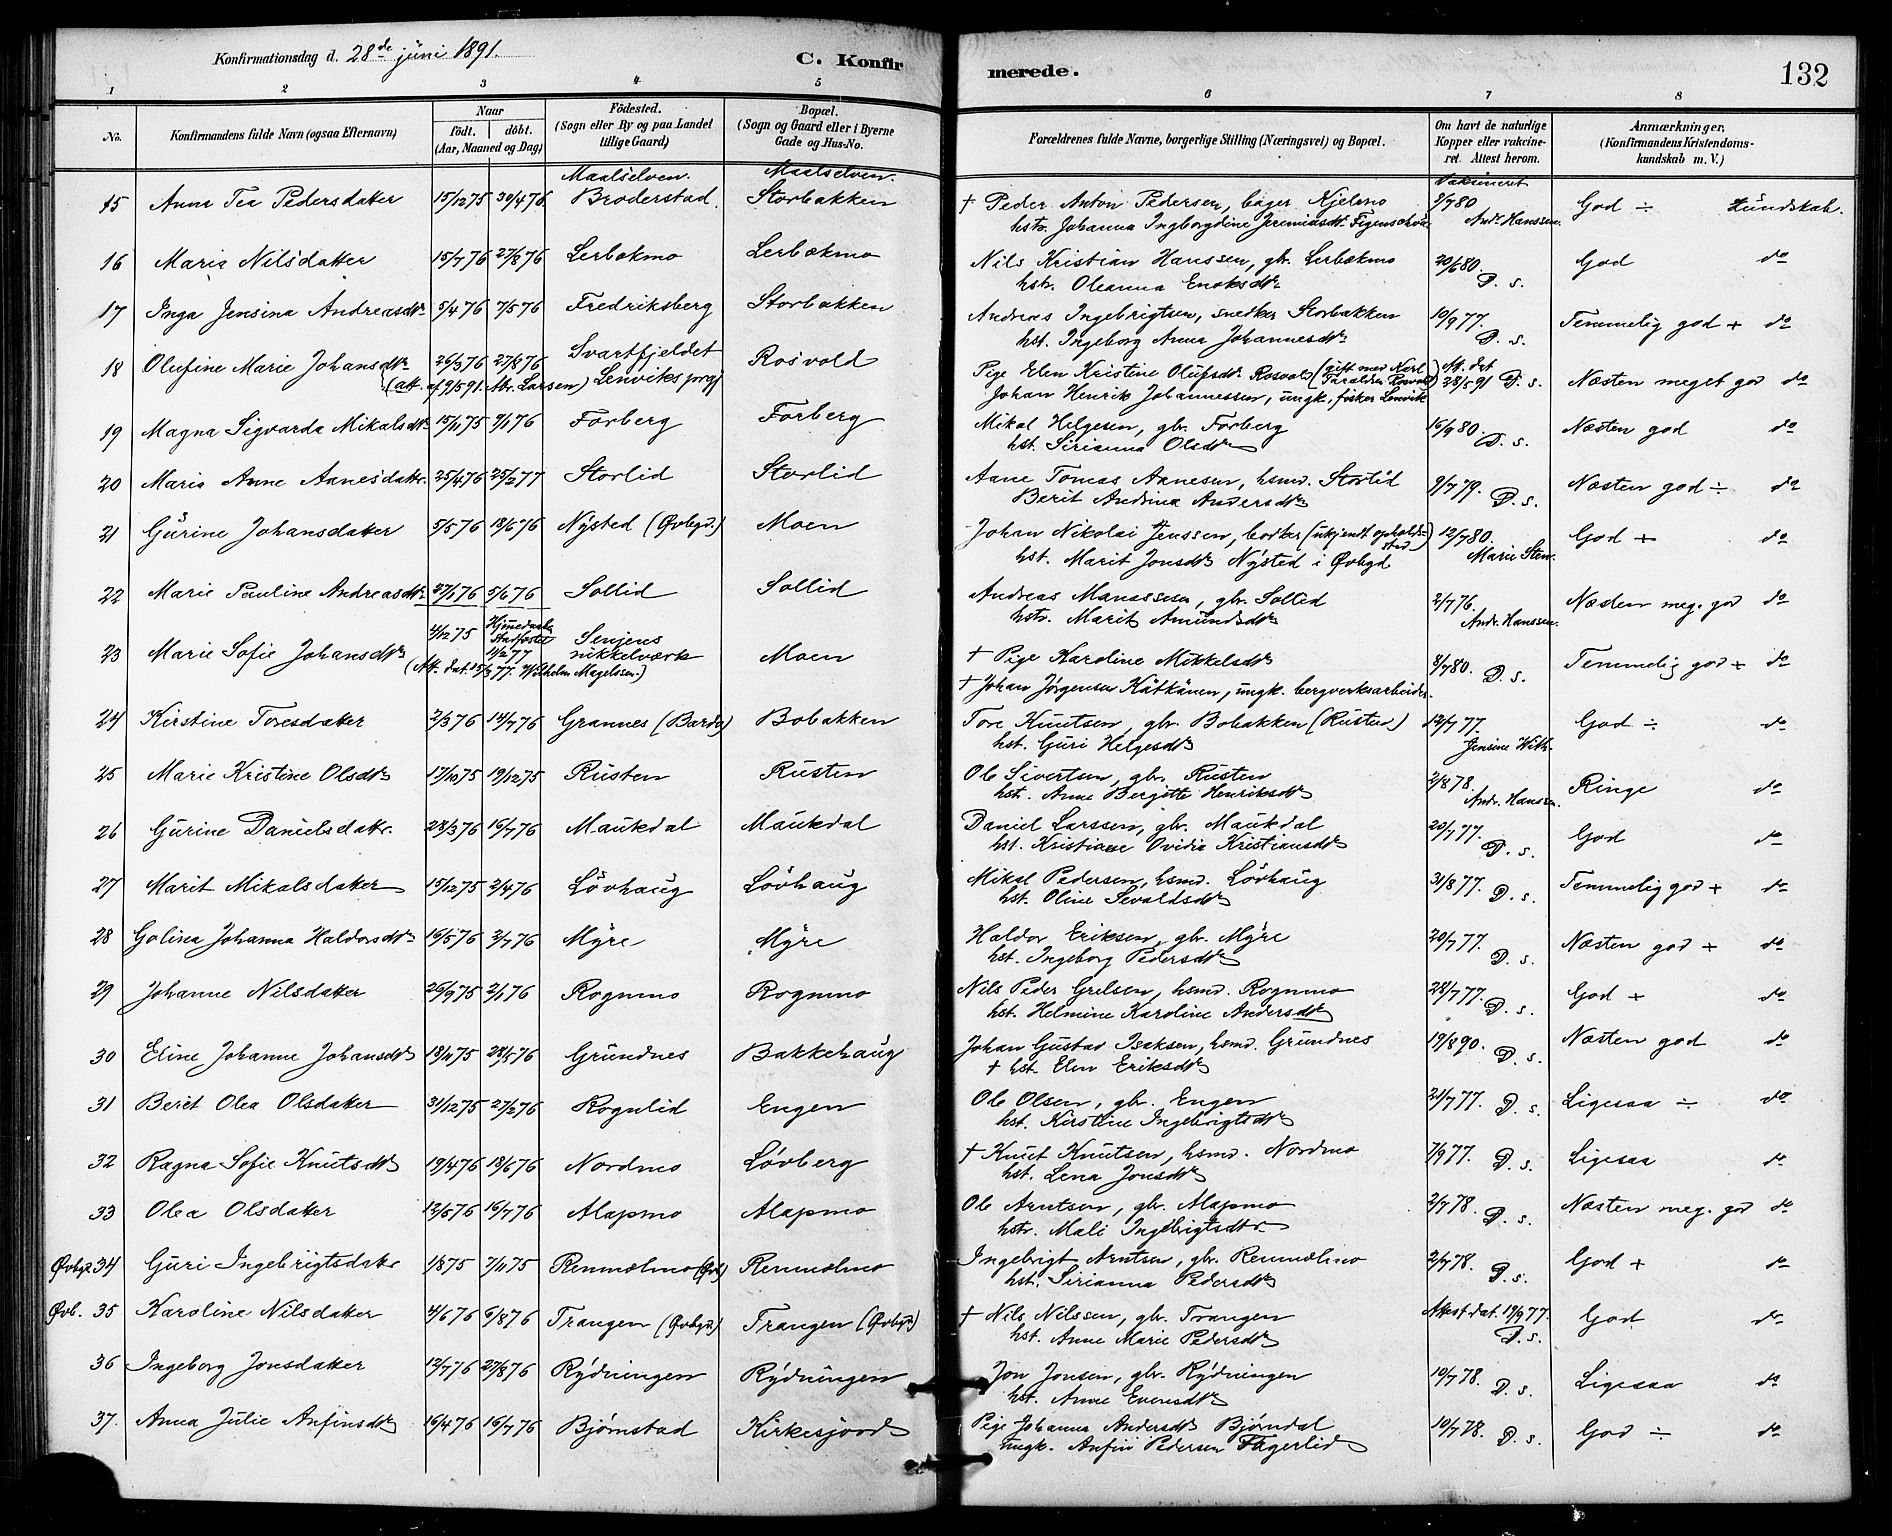 Konfirmationsdag d. 28de juni 1891.
C. Konfirmerede.
132
1 2 3 4 5 6 7 8
No.
Konfirmandens fulde Navn (ogsaa Efternavn)
Naar födt. döbt. (Aar, Maaned og Dag)
Födested. (Sogn eller By og paa Landet tillige Gaard)
Bopæl. (Sogn og Gaard eller i Byerne Gade og Hus-No.
Forældrenes fulde Navne, borgerlige Stilling (Næringsvei) og Bopæl.
Om havt de naturlige Kopper eller vakcineret. Attest herom.
Anmærkninger. (Konfirmandens Kristendomskundskab m. V.)
Maalselven. Maalselven. Vaksineret
15 Anna Tea Pedersdatter 15/12 75 30/4 76 Broderstad. Storbakken † Peder Anton Pedersen, Kjelmo 9/7 80 God ÷ Kundskab.
hstr. Johanna Ingborgdine Jeremiasdtr Figenschou Andr. Hanssen.
16 Maria Nilsdatter 15/7 76 27/8 76 Lerbækmo Lerbækmo Nils Kristian Hanssen, gbr. Lerbækmo 20/6 80. D. s. God do
hstr. Oleanna Enoksdtr
17 Inga Jensina Andreasdtr 5/4 76 7/5 76 Fredriksberg Storbakken Andreas Ingebrigtsen, snedker Storbakken 10/9 77. D. s. Temmelig god + do
hst. Ingeborg Anna Johannesdtr
18 Olufine Marie Johansdtr 26/3 76 27/8 76 Svartfjeldet Rosvold Pige Elen Kristine Olufsdtr. Rosvold (gift med Karl Taraldsen Rosvold) Att. dat 28/5 91 D. s. Næsten meget god do
(att. af 9/5 91. Mr. Larsen) Lenviks prgj Johan Henrik Johannessen, ungk., fisker Lenvik
19 Magna Sigvarda Mikalsdtr 15/11 75 9/1 76 Forberg Forberg Mikal Helgesen, gbr. Forberg 16/9 80. D. s. Næsten god do
hst. Sirianna Olsdtr
20 Maria Anne Aanesdattr. 25/4 76 25/2 77 Storlid Storlid Aane Tomas Aanesen, hsmd. Storlid 9/7 79. D. s. Næsten god ÷ do
Berit Andrina Andersdtr
21 Gurine Johansdatter 5/5 76 18/6 76 Nysted (Øvbgd.) Moen Johan Nikolai Jenssen, (ukjendt opholdssted) 12/7 80. Marie Sten. God + do
hst. Marit Jonsdtr Nysted i Øvbgd
22 Marie Pauline Andreasdtr 27/1 76 5/6 76 Sollid Sollid Andreas Manassesen, gbr. Sollid 2/7 76. Andr. Hanssen. Næsten meg. god do
hstr. Marit Amundsdtr
23 Marie Sofie Johansdtr 4/12 75 Hjemedøbt Stadfæstet 11/2 77 Senjens nikkelværk Moen † Pige Karoline Mikkelsdtr 8/7 80. D. s. Temmelig god + do
(Att. dat. 15/3 77. Wilhelm Magelssen.) † Johan Jørgensen Kätkänen, ungk. bergverksarbeider.
24 Kirstine Toresdatter 2/3 76 14/7 76 Grannes (Bardo) Bobakken Tore Knutsen, gbr. Bobakken (Rusten) 12/7 77. Jensine With. God ÷ do
hst. Guri Helgesdtr
25 Marie Kristine Olsdtr 17/10 75 19/12 75 Rusten Rusten Ole Sivertsen, gbr. Rusten 2/8 78. Andr. Hanssen. Ringe do
hst. Anne Bergitte Henriksdtr
26 Gurine Danielsdatr. 28/3 76 16/7 76 Maukdal Maukdal Daniel Larssen, gbr. Maukdal 20/7 77. D. s. God do
hst. Kristiane Ovidia Kristiansdtr
27 Marit Mikalsdatter 15/12 75 2/4 76 Løvhaug Løvhaug Mikal Pedersen, hsmd. Løvhaug 31/8 77. D. s. Temmelig god + do
hst. Oline Sivaldsdtr
28 Golina Johanna Haldorsdtr 16/5 76 2/7 76 Myre Myre Haldor Eriksen, gbr. Myre 20/7 77. D. s. Næsten god + do
hst. Ingeborg Pedersdtr
29 Johanne Nilsdatter 26/9 75 2/1 76 Rognmo Rognmo Nils Peder Grelsen, hsmd. Rognmo 28/7 77. D. s. God + do
hst. Helmine Karoline Andersdtr
30 Eline Johanne Johansdtr 18/11 75 28/5 76 Grundnes Bakkehaug Johan Gustav Isaksen, hsmd. Grundnes 19/8 90. D. s. Næsten god do
† hst. Elen Eriksdtr
31 Berit Olea Olsdatter 31/12 75 27/2 76 Rognlid Engen Ole Olsen, gbr. Engen 21/7 77. D. s. Ligesaa ÷ do
hst. Kirstine Ingebrigtsdtr
32 Ragna Sofie Knutsdtr 19/4 76 18/6 76 Nordmo Løvberg † Knut Knutsen, hsmd. Nordmo 7/9 77. D. s. Ligesaa do
hst. Lena Jonsdtr
33 Olea Olsdatter 12/6 76 16/7 76 Alapmo Alapmo Ole Arntsen, gbr. Alapmo 2/7 78. D. s. Næsten meg. god do
hstr. Mali Ingebrigtsdtr
Øvbgd. 34 Guri Ingebrigtsdatr 1/8 75 7/11 75 Renmælmo (Øvb) Renmælmo Ingebrigt Arntsen, gbr. Renmælmo 2/7 78. D. s. God + do
hst. Sirianna Pedersdtr
Øvb. 35 Karoline Nilsdatter 4/6 76 6/8 76 Frangen (Øvbgd) Frangen (Øvbgd) † Nils Nilssen, gbr. Frangen Attest dat. 19/9 77. D. s. God do
hst. Anne Marie Pedersdtr
36 Ingeborg Jonsdatter 12/7 76 27/8 76 Rydningen Rydningen Jon Jonsen, gbr. Rydningen 10/7 78. D. s. Ligesaa do
hst. Anne Evensdtr
37. Anna Julie Anfinsdtr 16/4 76 16/7 76 Bjørnstad Kirkesjord Pige Johanna Andersdtr Bjørndal 10/7 78. D. s. God ÷ do
ungk. Anfin Pedersen Fagerlid